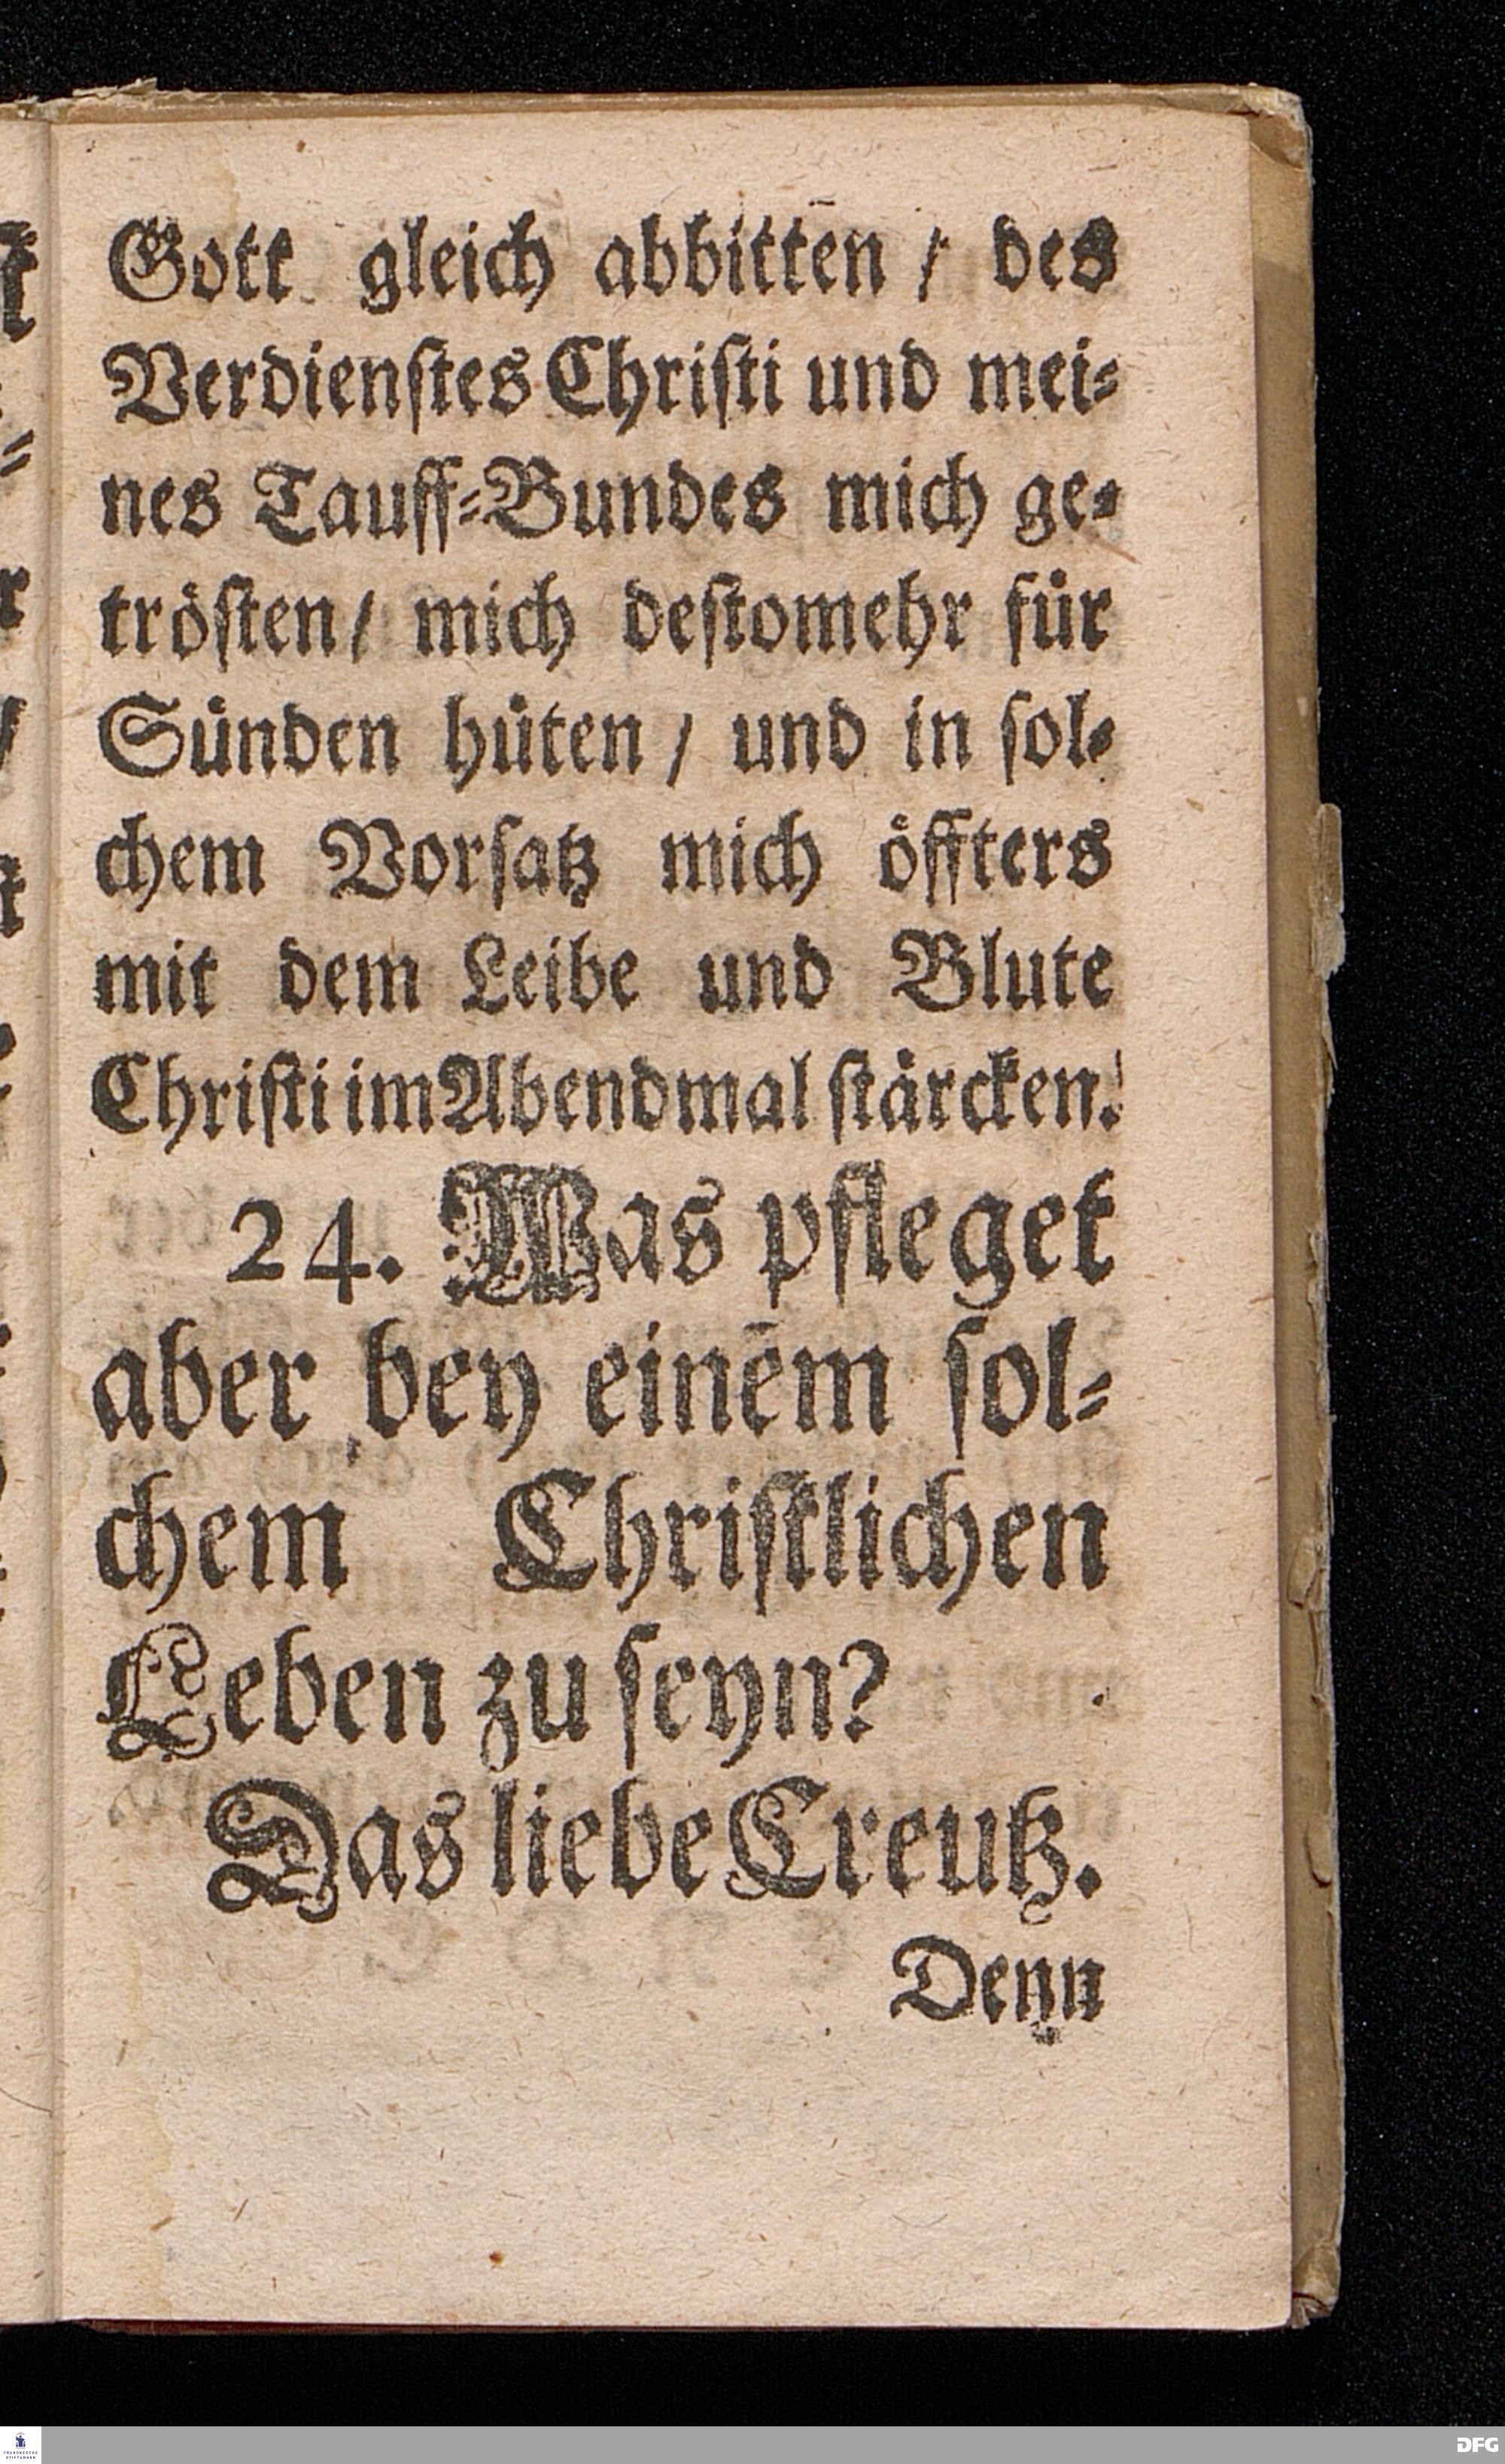 Gott gleich abbitten / des
Verdienſtes Chriſti und mei⸗
nes Tauff⸗Bundes mich ge⸗
tröſten / mich deſtomehr für
Sünden hüten / und in ſol⸗
chem Vorſatz mich öffters
mit dem Leibe und Blute
Chriſti im Abendmal ſtärcken.
24. Was pfleget
aber bey einēm ſol⸗
chem Chriſtlichen
Leben zu ſeyn?
Das liebe Creutz.
Denn
FRANCKESCHE
STIFTUNGEN
DFG